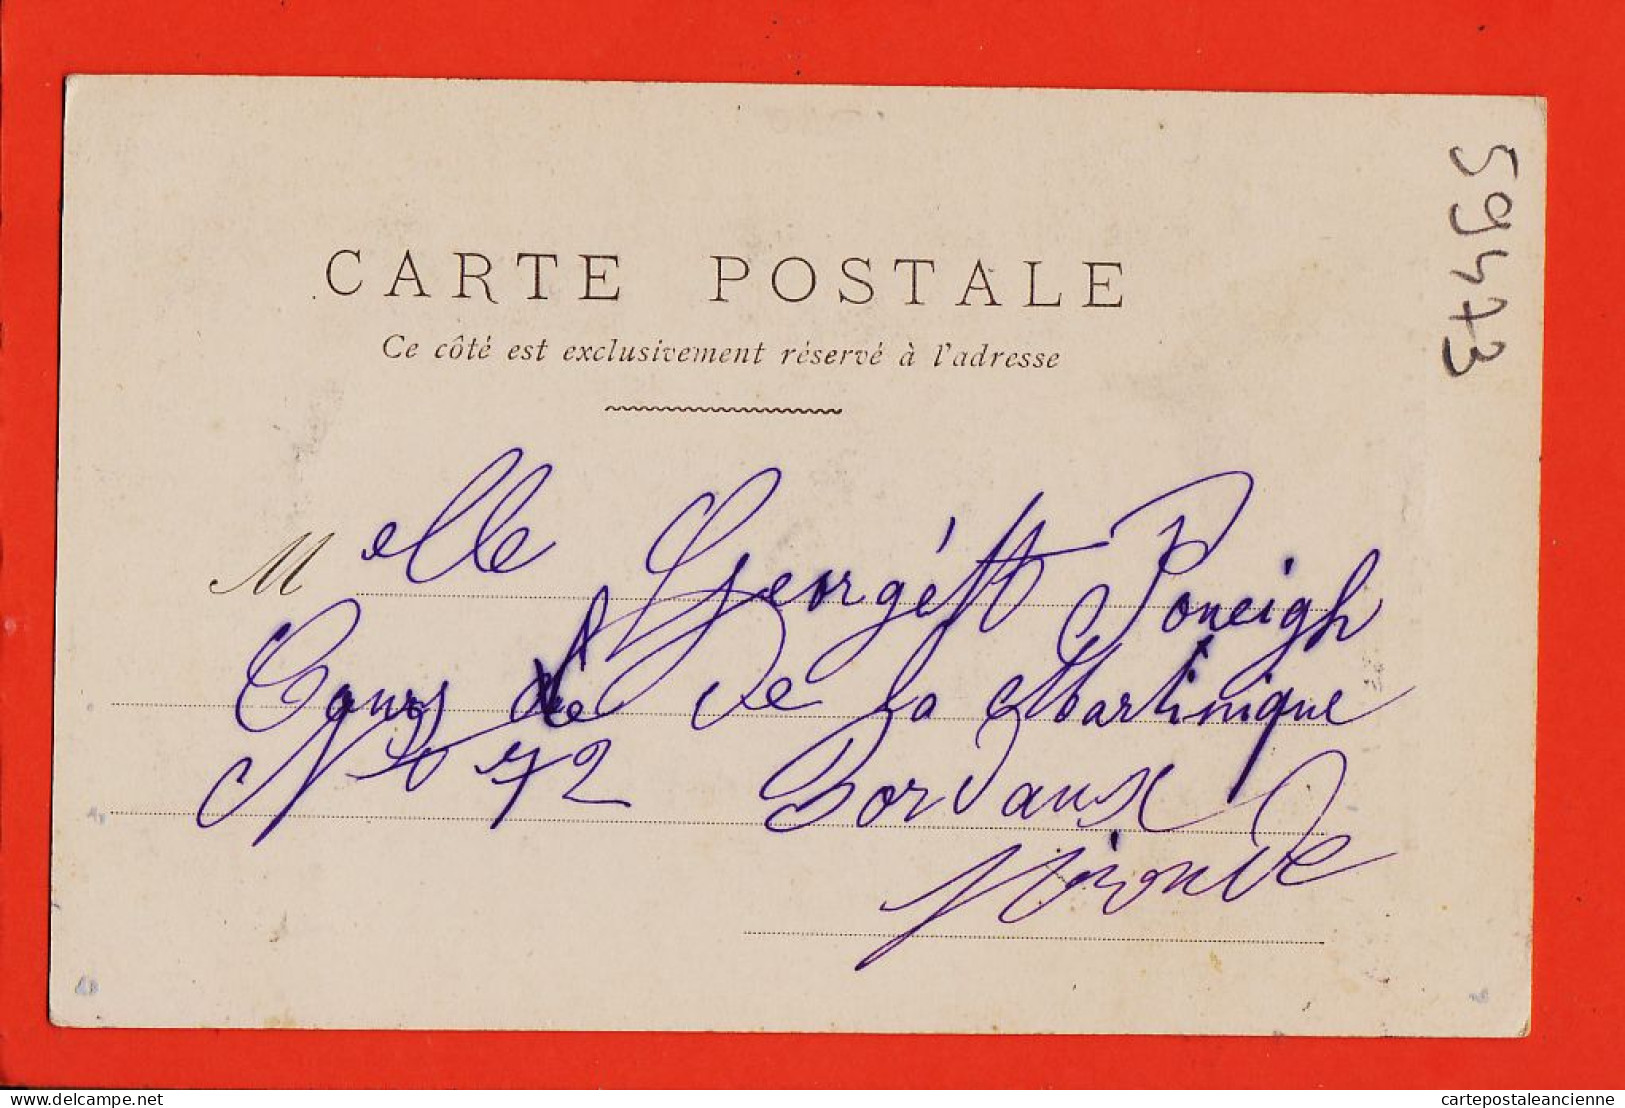 CARTE POSTALE
Ce côté est exclusivement réservé à l'adresse
Melle Georgétt Poneigh
Cours de De La Martinique
No 72 Bordaux
Gironde
59473
delcampe.net
cartepostaleancienne